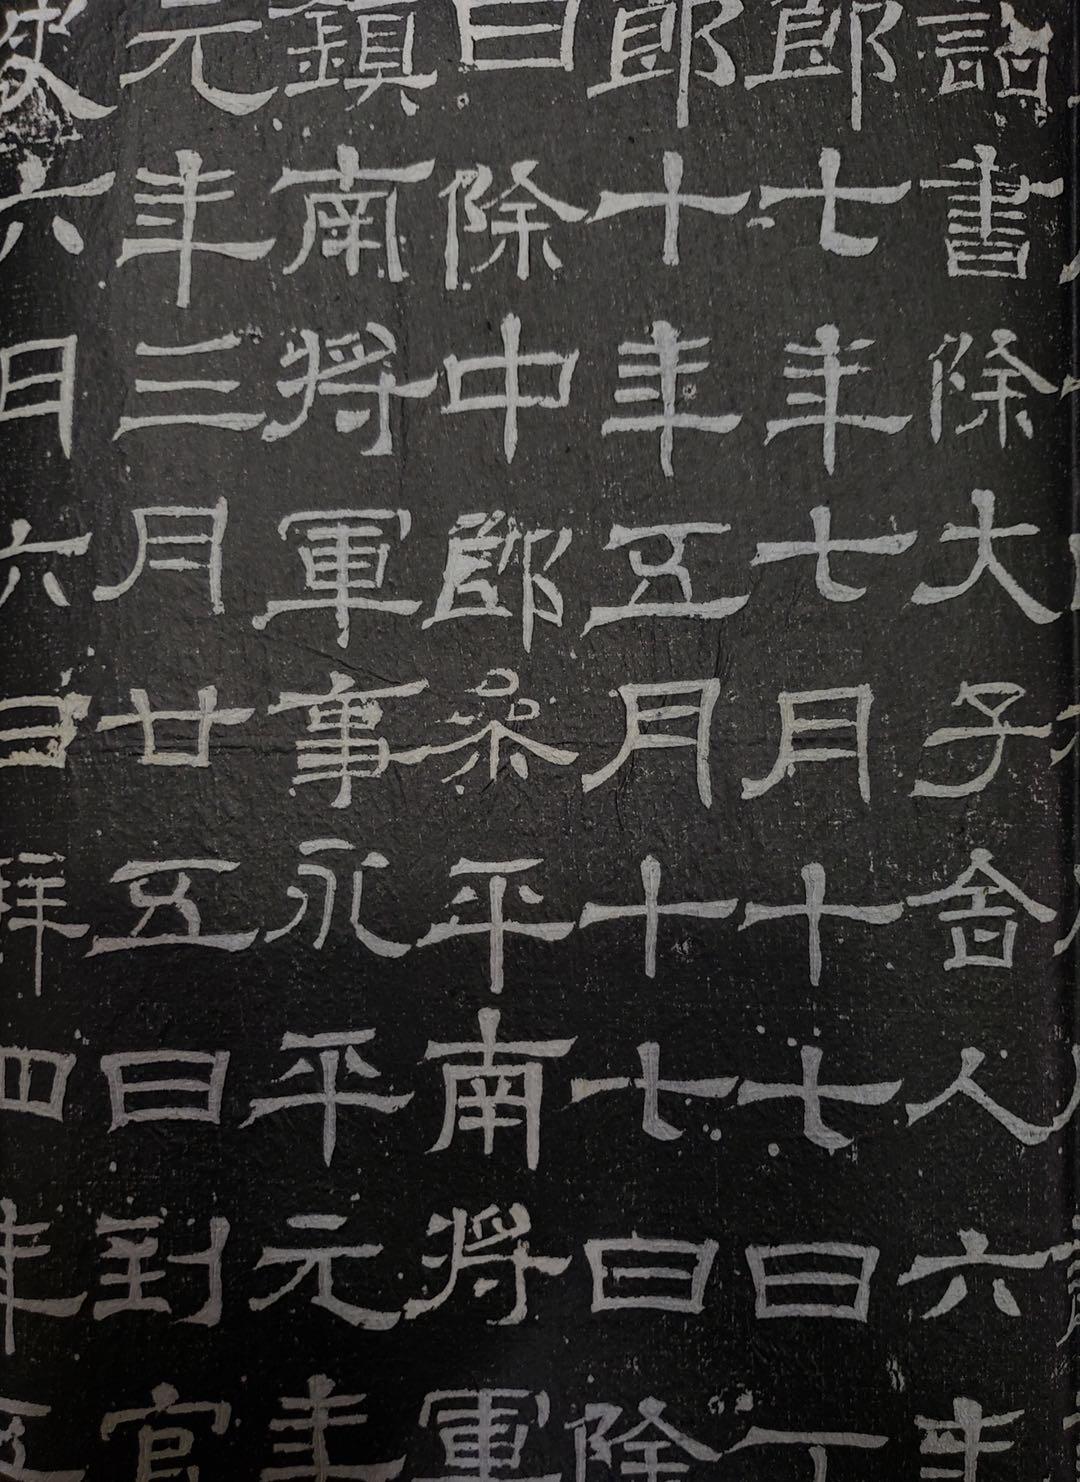 詔書除大子舍人六年
郎七年七月十七日丁
郎十年五月十七日除
日除中郎叅平南將軍
鎮南將軍事永平元年
元年三月廿五日到官
六月六日拜四年五